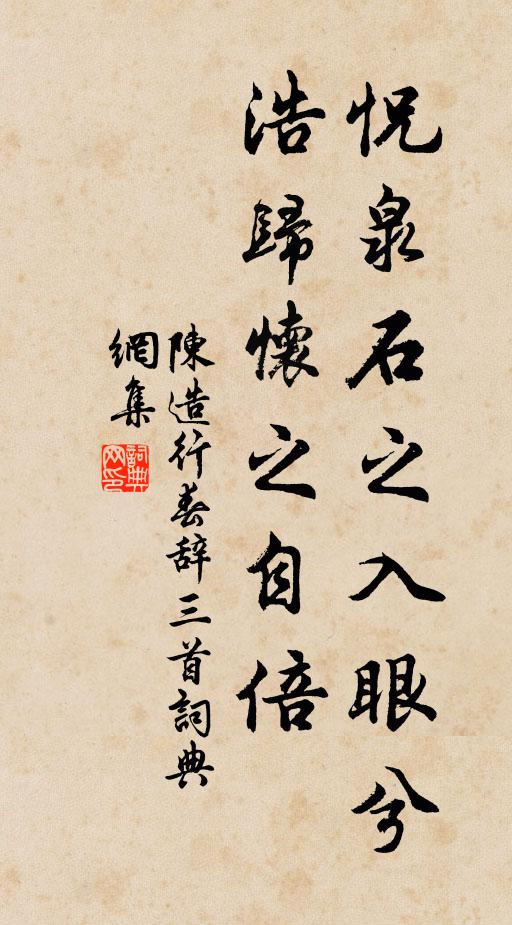 怳泉石之入眼兮
浩歸懷之自倍
陳造行春辞三首詞典
網集
詞典
网印